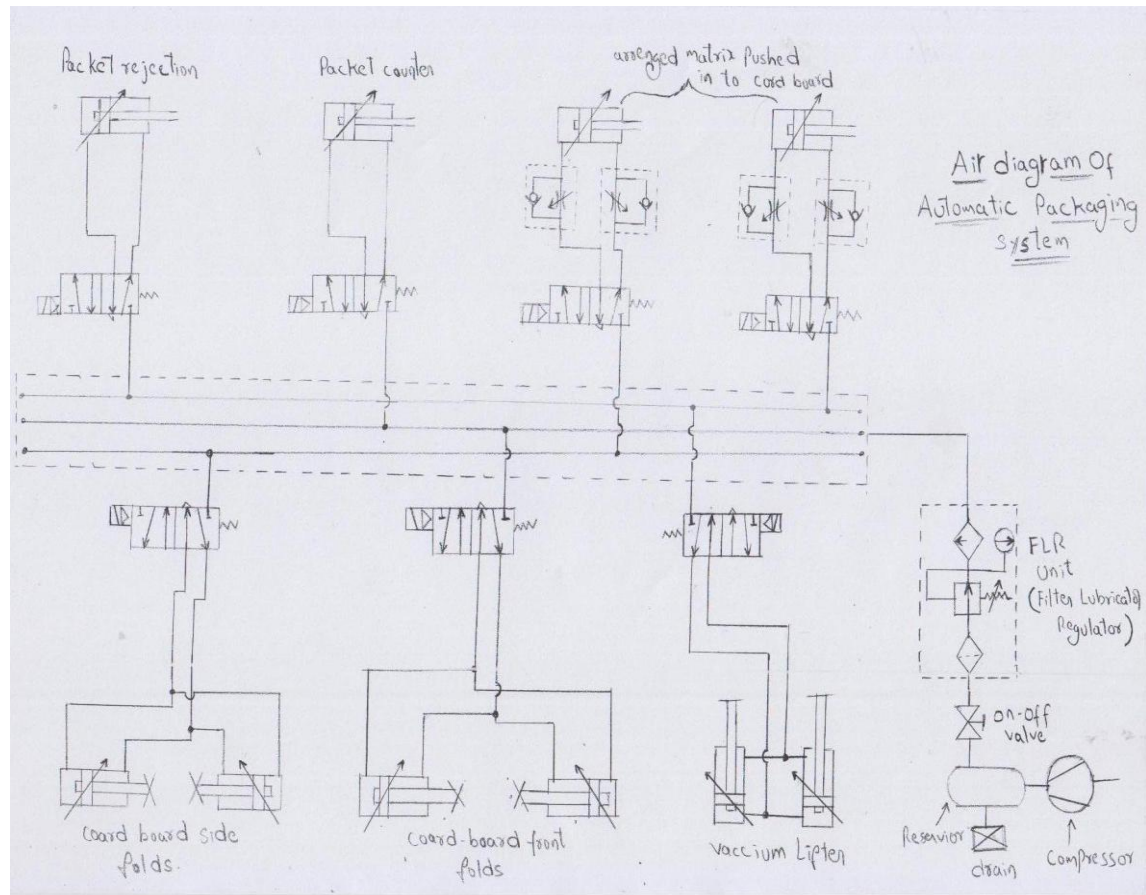 Packet rejection
Packet counter
arrenged matrix pushed
in to cord board
Air diagram Of
Automatic Packaging
system
FLR
Unit
(Filter Lubricator
Regulator)
on-off
valve
Reservior
drain
Compressor
Coard board side
folds.
Coard-board front
folds
Vaccium Lifter